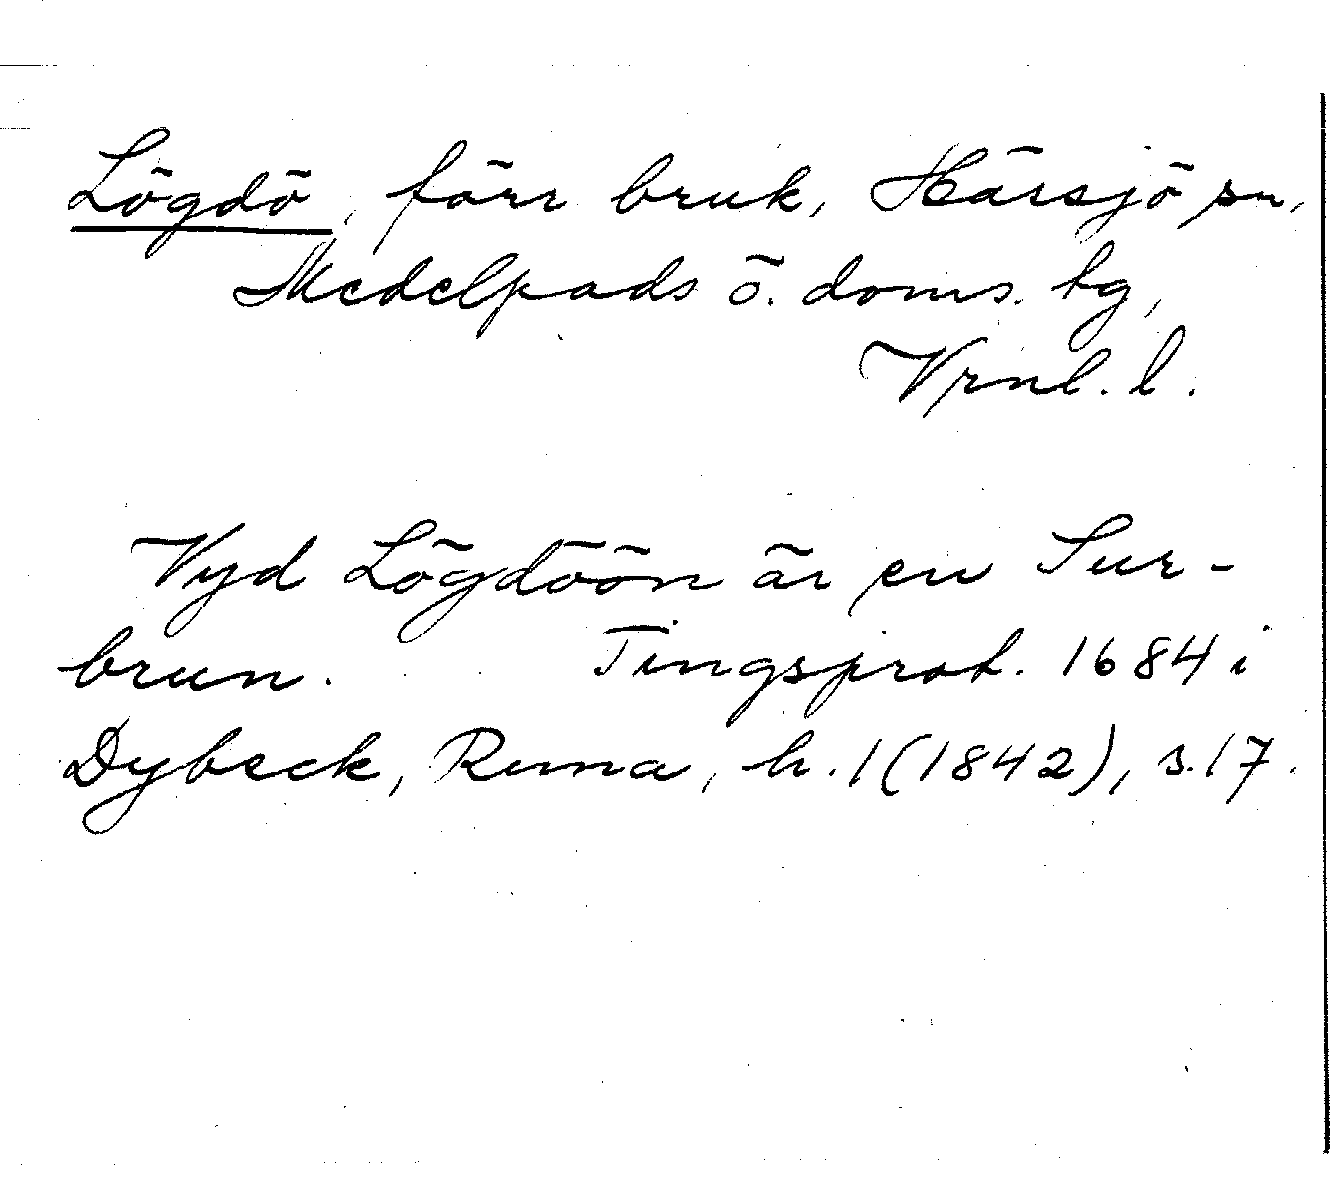 Lögdö, förr bruk, Hässjö sn,
Medelpads ö. doms. tg,
Vrnl. l.
Vyd Lögdöön är en Sur-
brun. Tingsprot. 1684 i
Dybeck, Runa, h. 1 (1842), s. 17.